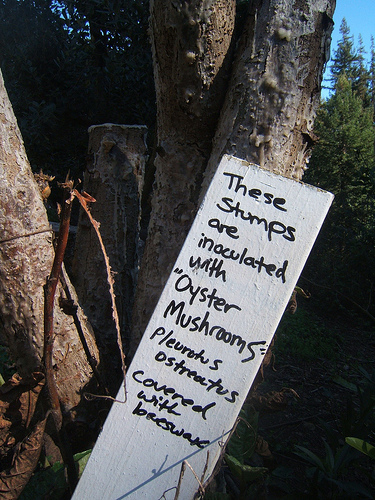 These
Stumps
are
inoculated
with
"Oyster
Mushrooms=
Pleurotus
ostreatus
covered
with
beeswax